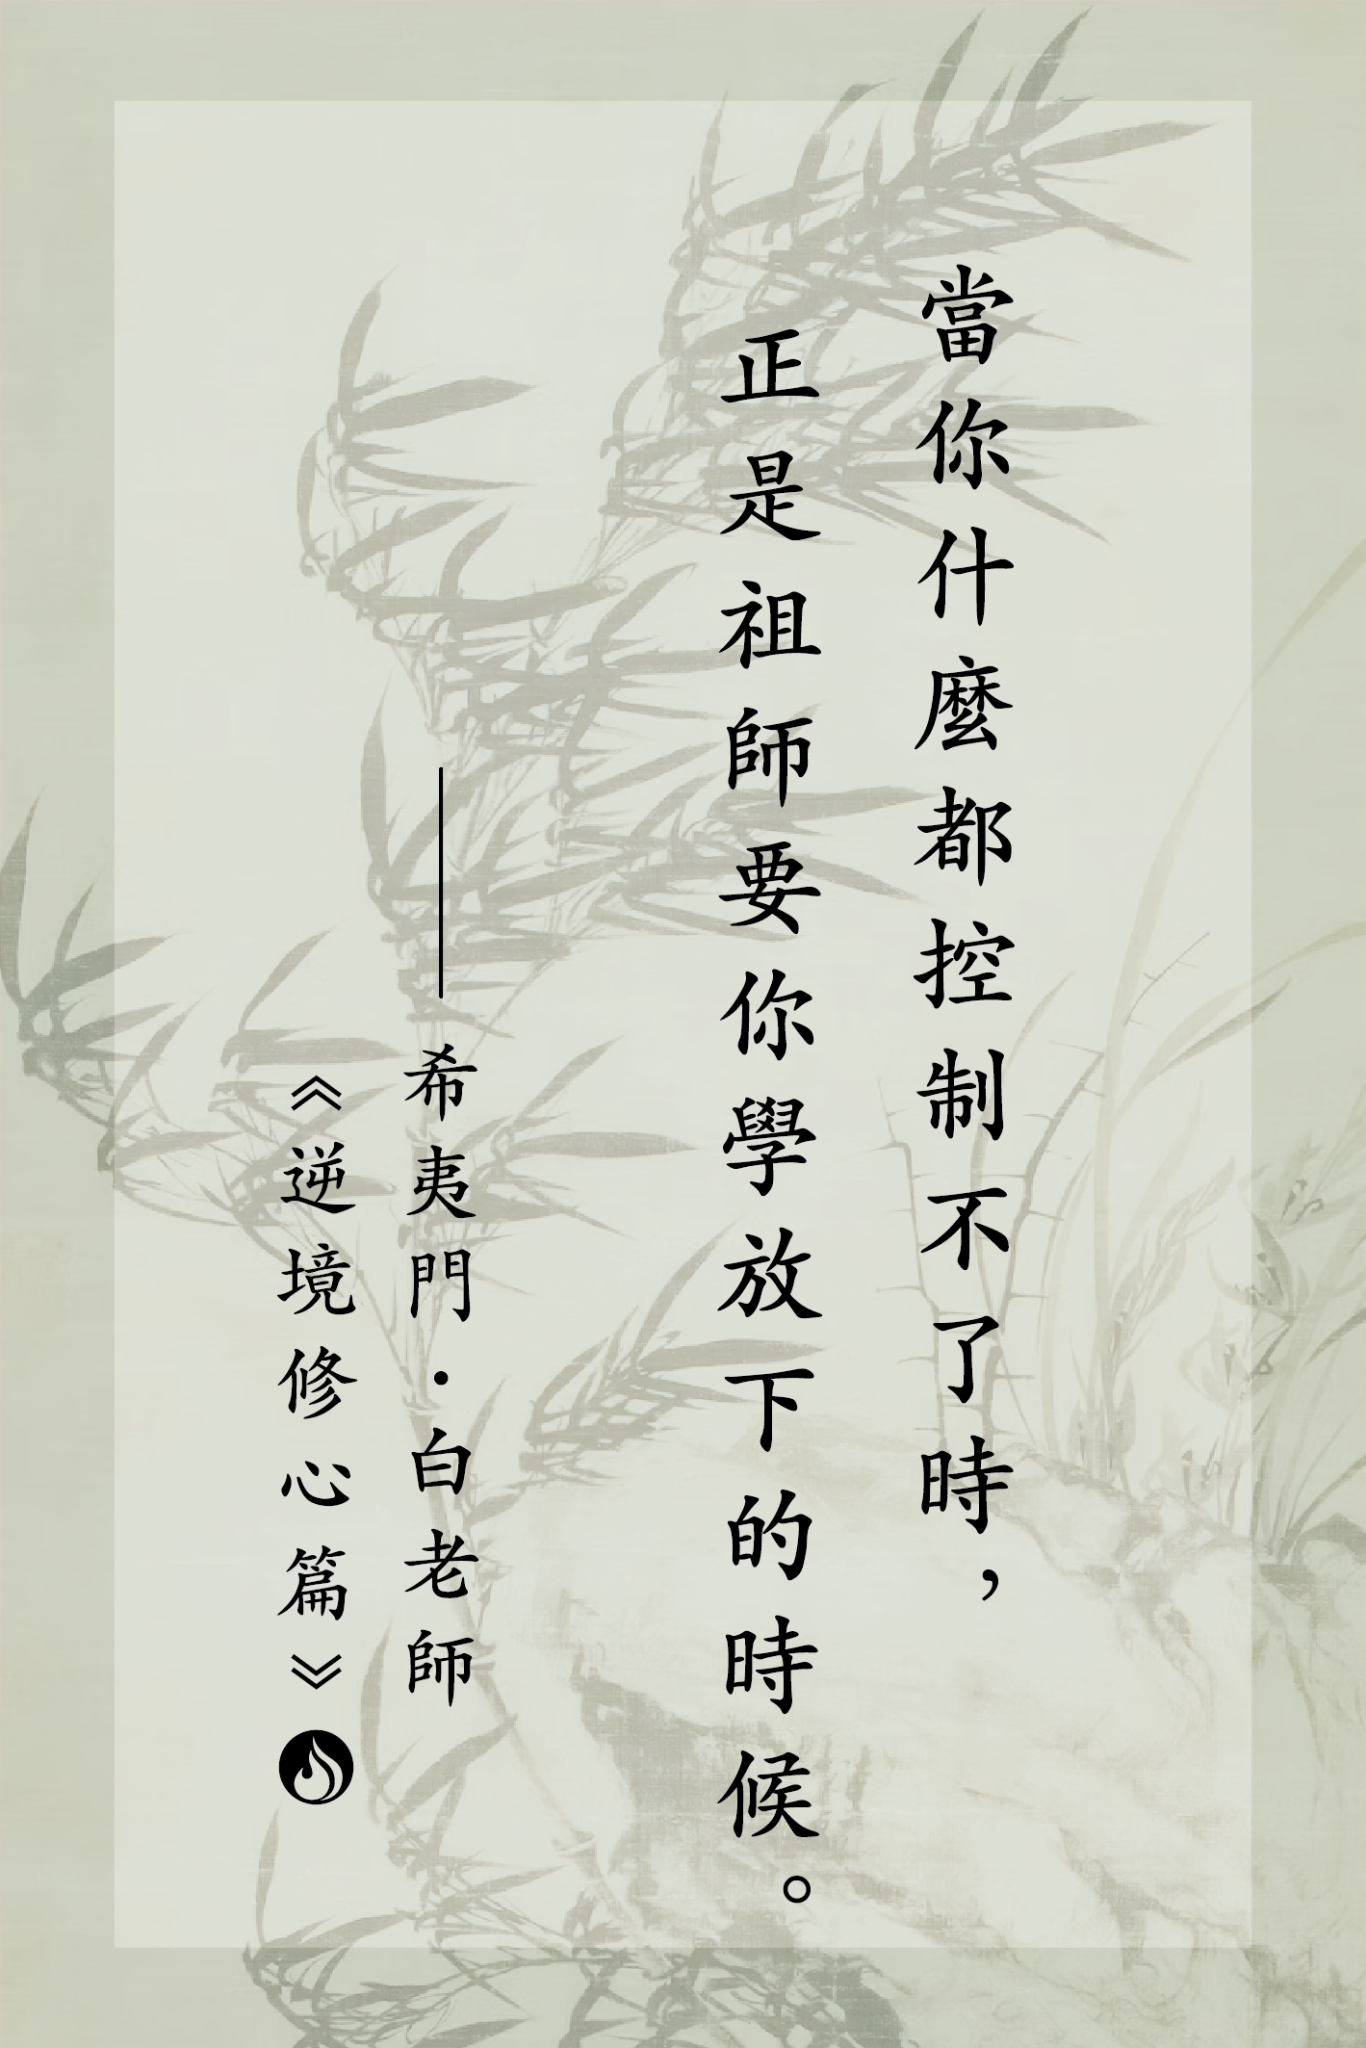 當你什麼都控制不了時，
正是祖師要你學放下的時候。
——希夷門·白老師
《逆境修心篇》